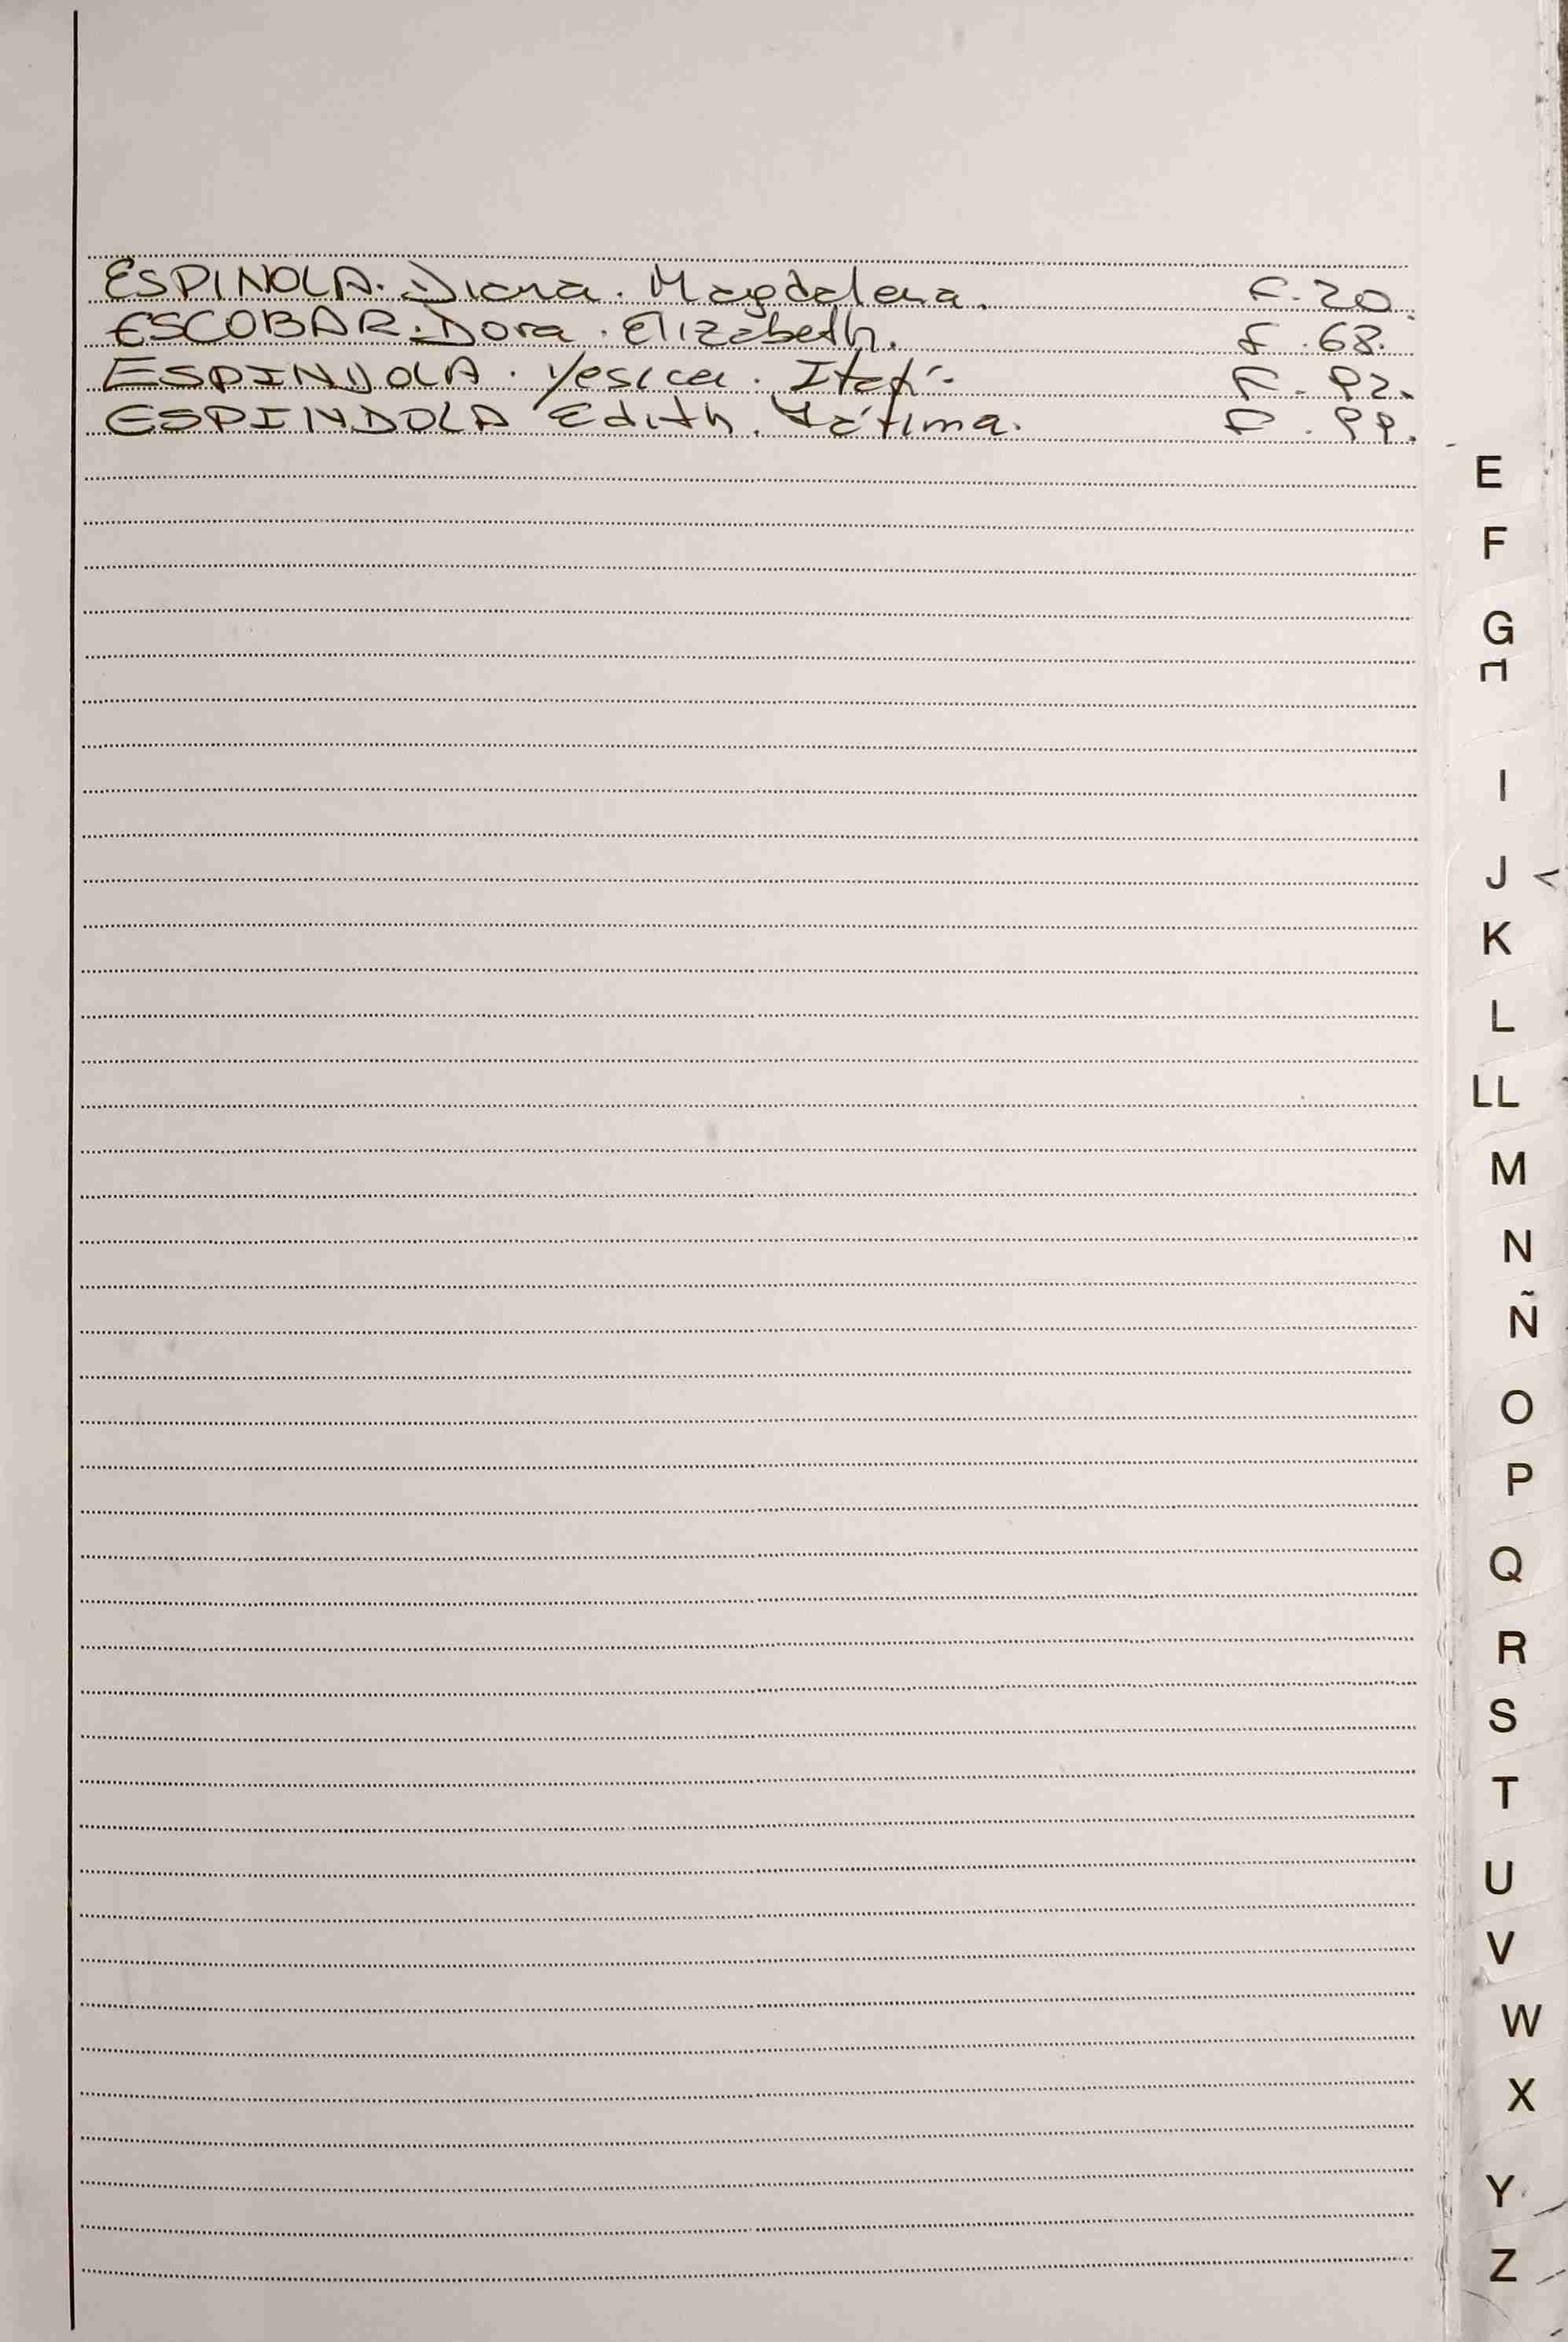 ESPINOLA. Diana. Magdalena. F. 20.
ESCOBAR. Dora. Elizabeth. F. 68.
ESPINDOLA. Yesica. Itatí. F. 92.
ESPINDOLA Edith. Fátima. F. 99.
E
F
G
I
J
K
L
LL
M
N
Ñ
O
P
Q
R
S
T
U
V
W
X
Y
Z